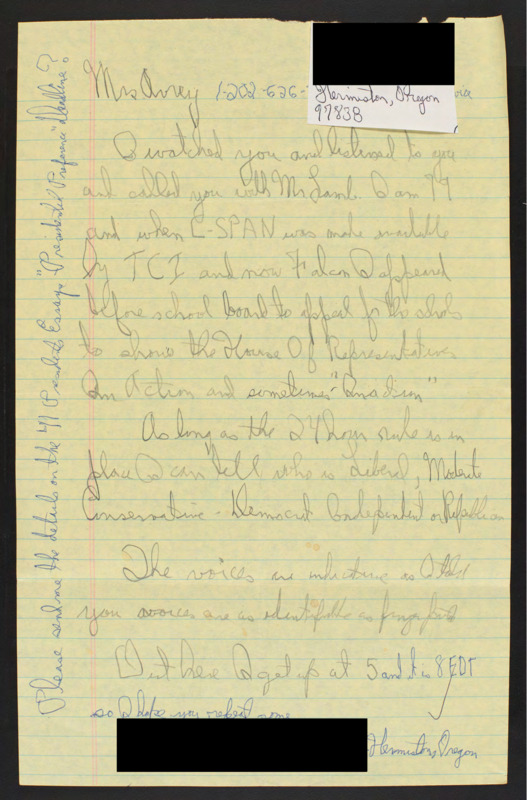 Mrs Avrey 1-202-626-
Hermiston, Oregon
97838
I watched you and listened to you
and called you with Mr Lamb. I am 79
and when C-SPAN was made available
by TCI and now Falcon I appeared
before school board to appeal for the schools
to show the House Of Representatives
In Action and sometimes "
As long as the 24 hour rule is in
place I can tell who is Liberal, Moderate
Conservative - Democrat Independent or Republican
The voices are indicative as
you voices are as identifiable as finger
Out here I get up at 5 and it is 8 EDT
so I hope you repeat some
Hermiston, Oregon
Please send me the details on the 41 Presidents Essays "Presidential Preference" Deadline?